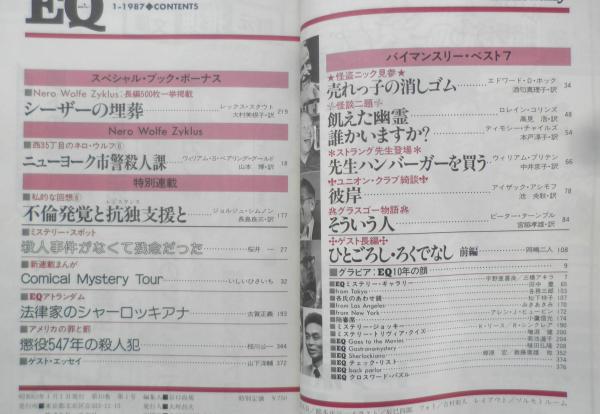 EQ
1-1987◆CONTENTS
スペシャル・ブック・ボーナス
■Nero Wolfe Zyklus:長編500枚一挙掲載
シーザーの埋葬 レックス・スタウト 大村美根子・訳 219
Nero Wolfe Zyklus
■西35丁目のネロ・ウルフ⑥
ニューヨーク市警殺人課 ウィリアム・S・ベアリング・グールド 山本 博・訳 18
特別連載
■私的な回想⑥
不倫発覚と抗独支援と レジスタンス ジョルジュ・シムノン 長島良三・訳 177
■ミステリー・スポット
殺人事件がなくて残念だった 桜井 一 27
■新連載まんが
Comical Mystery Tour いしいひさいち 32
■EQアトランダム
法律家のシャーロッキアナ 古賀正義 193
■アメリカの罪と罰
懲役547年の殺人犯 枝川公一 344
■ゲスト・エッセイ 山下洋輔 372
バイマンスリー・ベスト7
★怪盗ニック見参★
売れっ子の消しゴム エドワード・D・ホック 34
☆怪談二題☆
飢えた幽霊 ロレイン・コリンズ 高見 浩・訳 48
誰かいますか? ティモシー・チャイルズ 木戸淳子・訳 54
＊ストラング先生登場＊
先生ハンバーガーを買う ウィリアム・ブリテン 中井京子・訳 66
✤ユニオン・クラブ綺談✤
彼岸 アイザック・アシモフ 池 央耿・訳 78
グラスゴー物語
そういう人 ピーター・ターンブル 宮脇孝雄・訳 84
✣ゲスト長編✣
ひとごろし・ろくでなし 前編 岡嶋二人 108
■グラビア:EQ10年の顔 9
■EQミステリー・ギャラリー
■from Tokyo
■各氏のあわせ鏡
■from Los Angeles
■from New York
■陪審席
■ミステリー・ジョッキー
■ミステリー・トリヴィア・クイズ
■EQ Goes to the Movies
■EQ Gastronomystery
■EQ Sherlockiana
■EQ チェック・リスト
■EQ back parlor
■EQ クロスワード・パズル
特別定価 ¥750